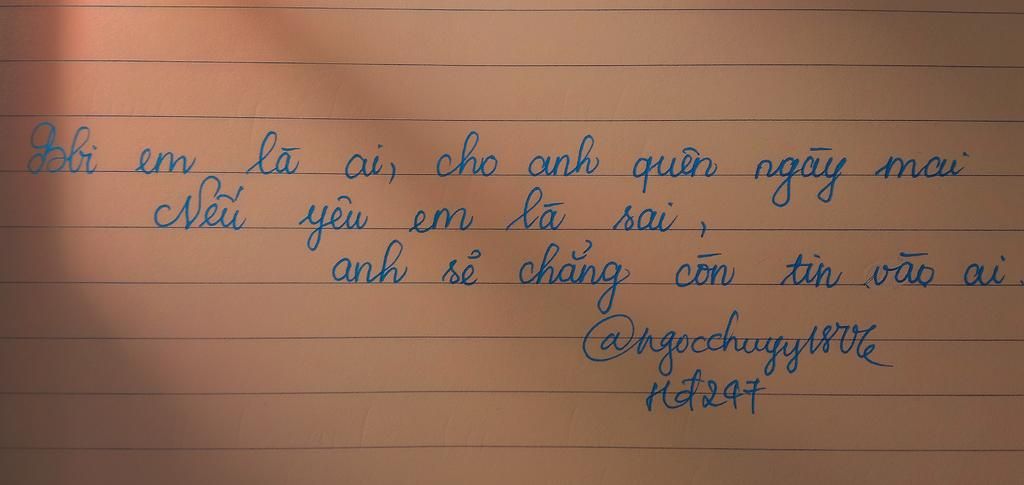 Bởi em là ai, cho anh quên ngày mai
Nếu yêu em là sai,
anh sẽ chẳng còn tin vào ai.
@ngocchuyy1806
HĐ247